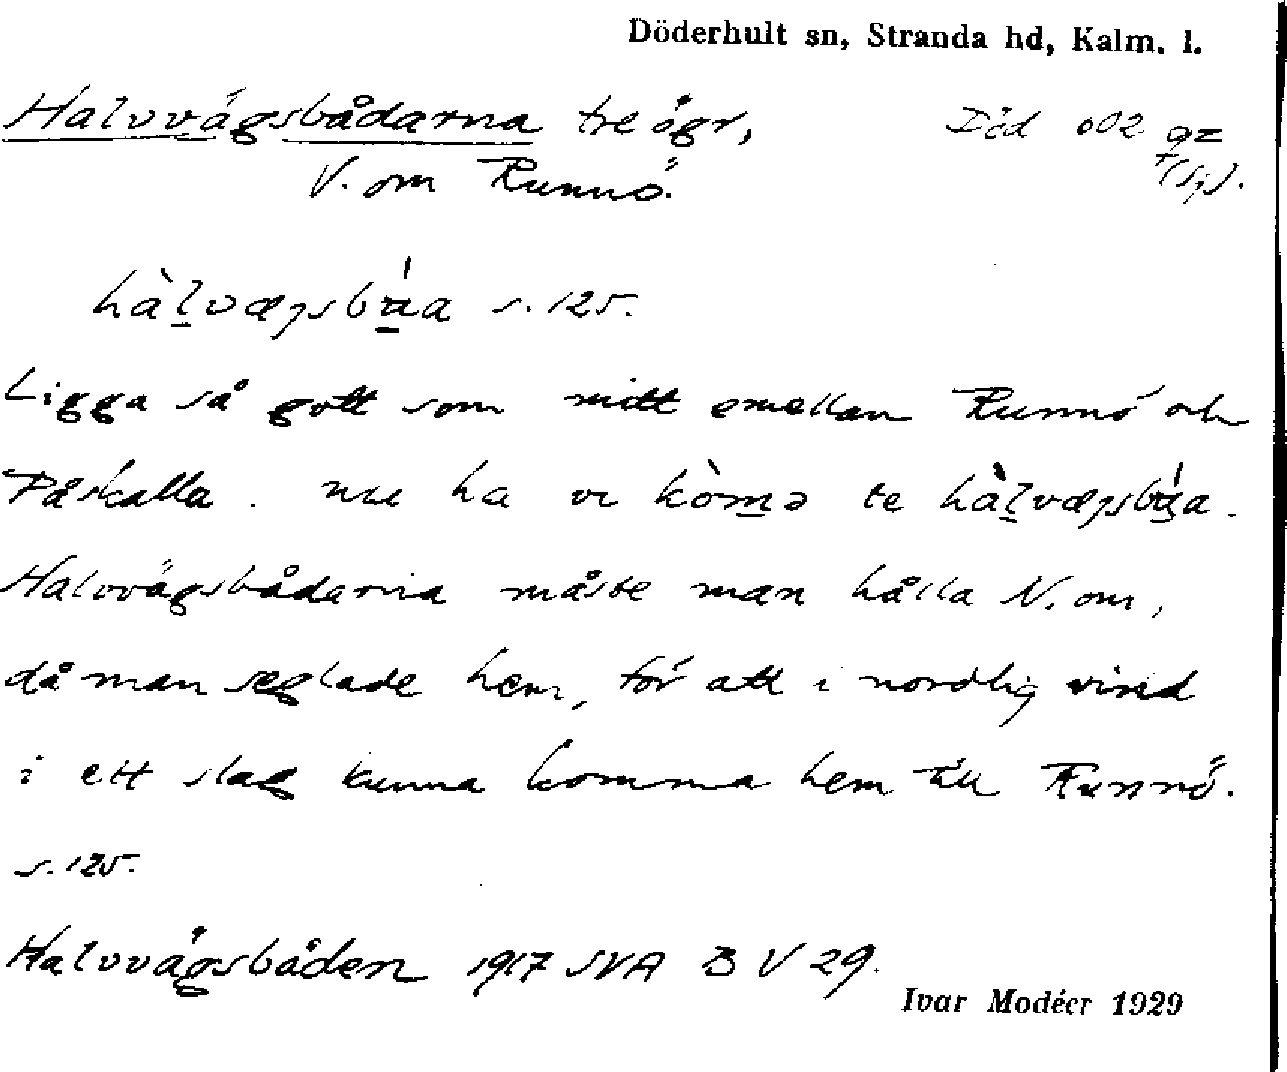 Döderhult sn, Stranda hd, Kalm. l.
Halvvägsbådarna tre ögr,
Död 002 9z
V. om Runnö.
hàl̠væգsbá̠a s. 125.
Ligga så gott som mitt emellan Runnö och
Påskalla. nu ha vi kòm̠ə te
Halvvägsbådarna måste man hålla N. om,
då man seglade hem, för att i nordlig vind
i ett slag kunna komma hem till Runnö.
s. 125.
Halvvägsbåden 1917 SVA B V 29.
Ivar Modéer 1929